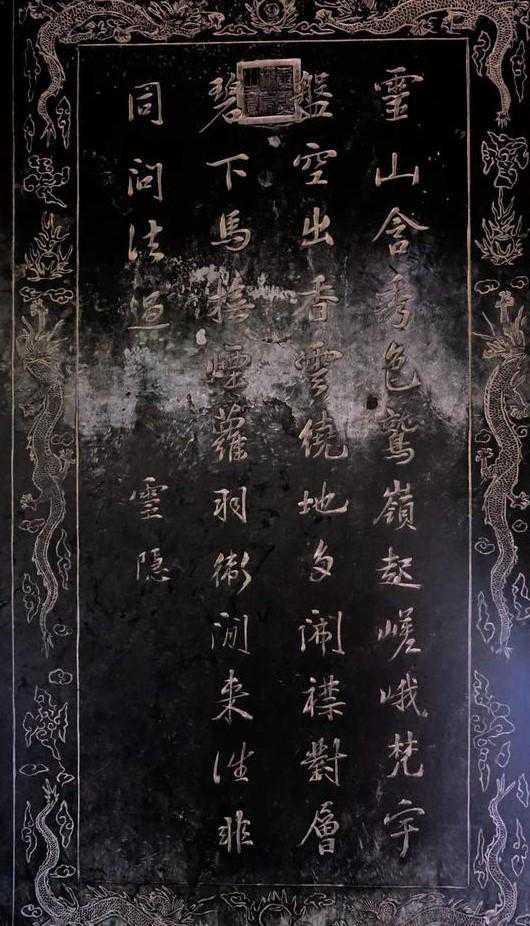 靈山含秀色鷲嶺起嵯峨梵宇
盤空出香雲繞地多開襟對層
碧下馬撫煙蘿羽衛閒來往非
同問法過　靈隱